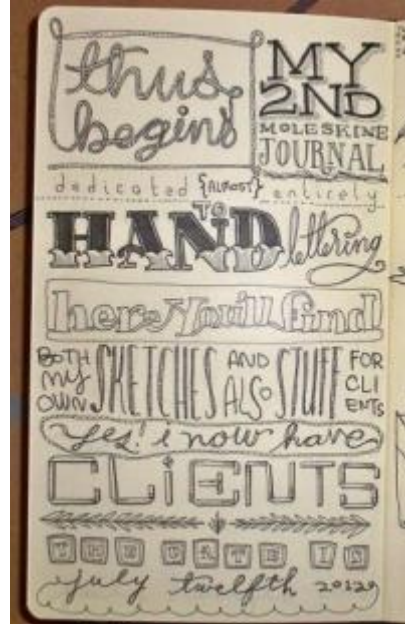 thus begins
MY
2ND
MOLESKINE
JOURNAL
dedicated {ALMOST} entirely
TO
HAND lettering
here You'll find
BOTH MY OWN SKETCHES AND ALSO STUFF FOR CLIENTS
yes! i now have
CLiENTS
THE DATE IS
july twelfth 2012